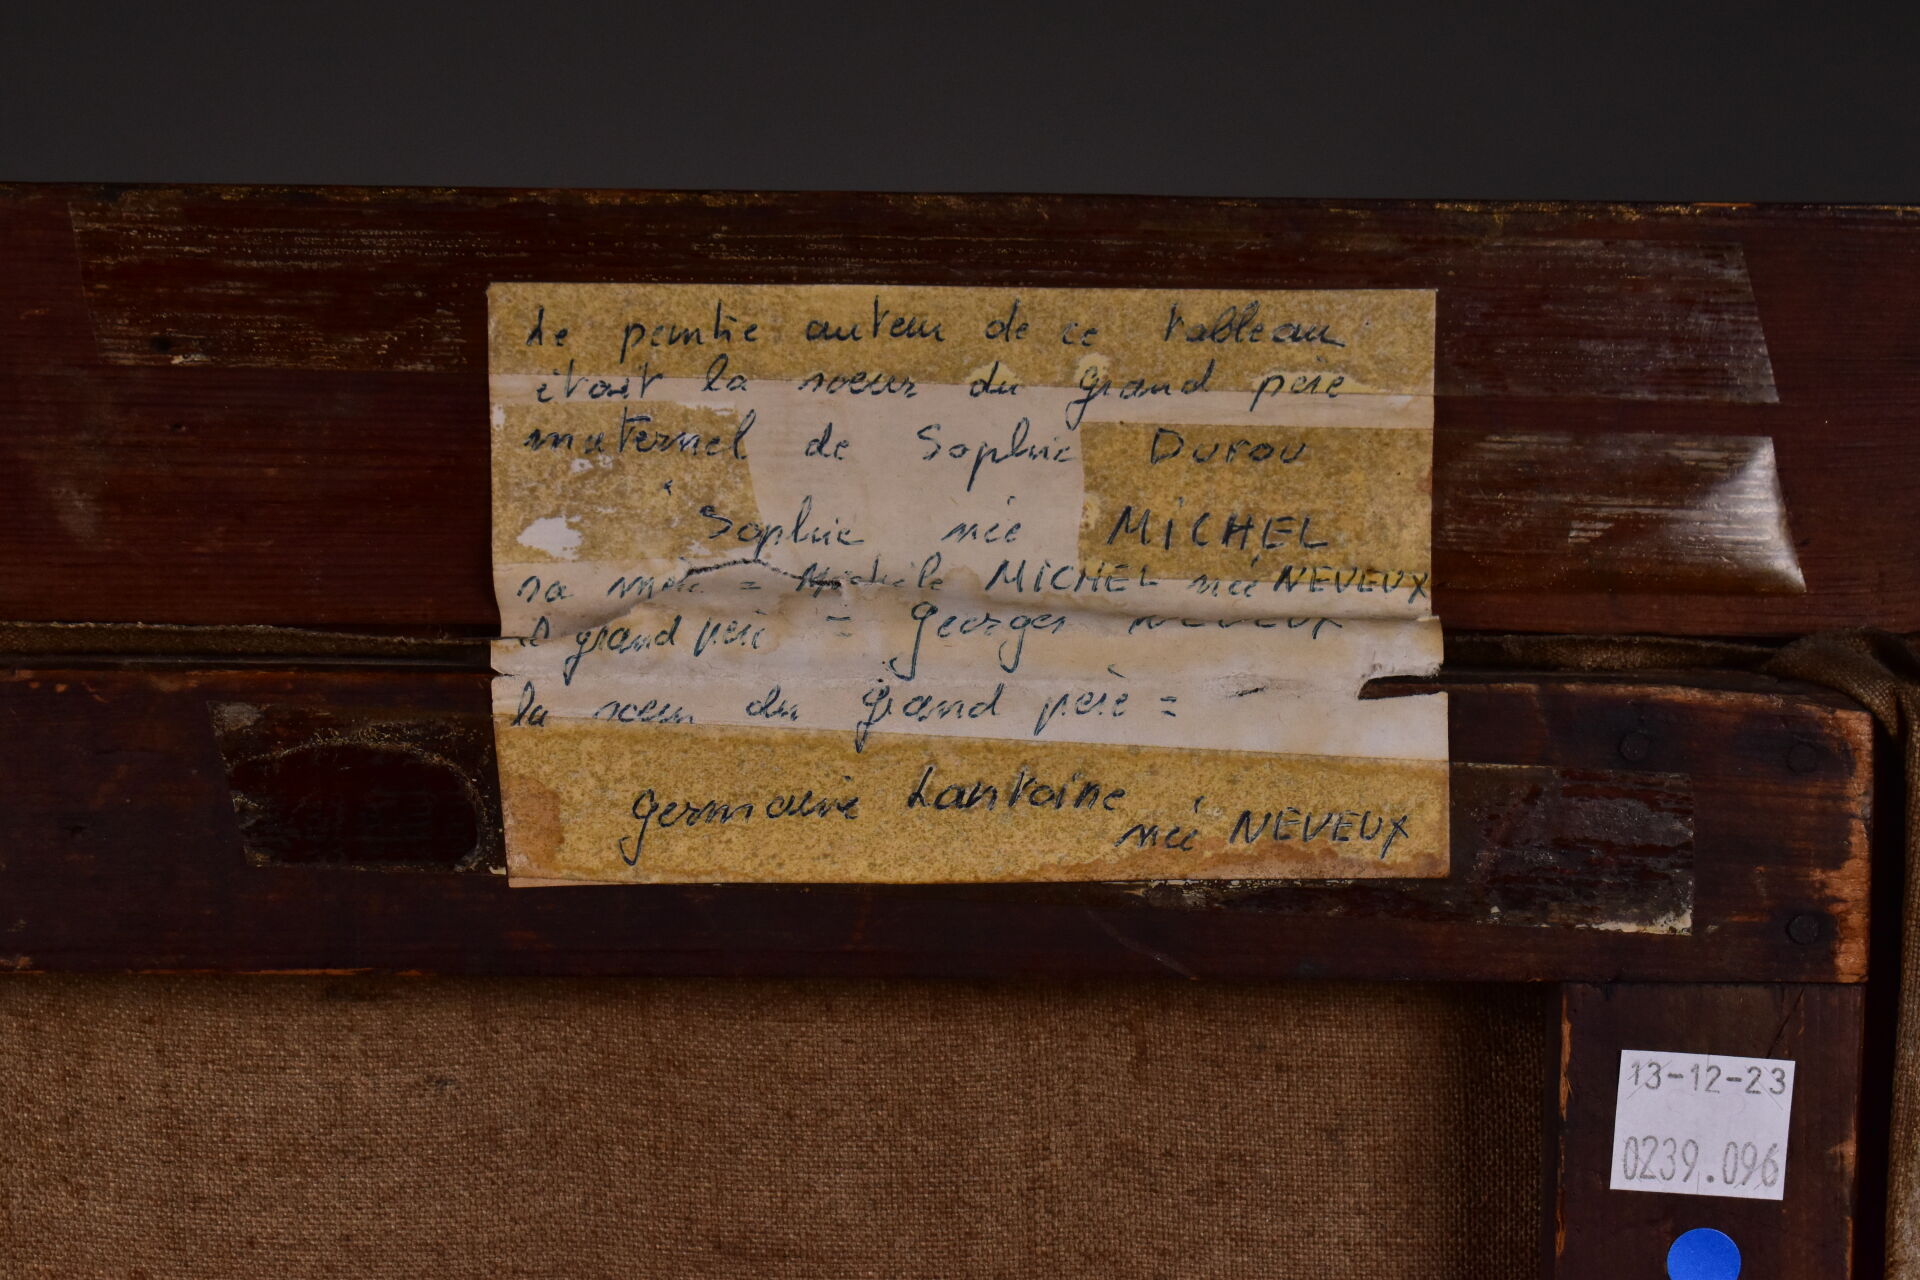 Le peintre auteur de ce tableau
était la soeur du grand père
maternel de Sophie Durou
Sophie née MICHEL
sa mère = Michèle MICHEL née NEVEUX
le grand père = Georges NEVEUX
la soeur du grand père =
Germaine Lantoine
née NEVEUX
13-12-23
0239.096